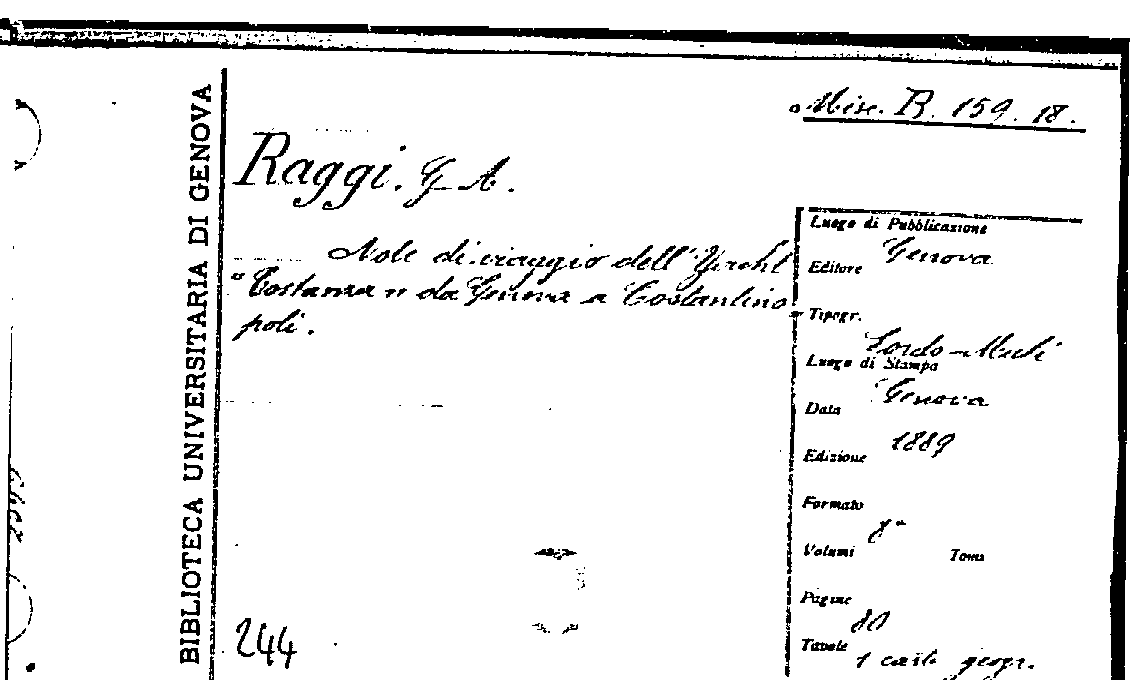 BIBLIOTECA UNIVERSITARIA DI GENOVA
Misc. B. 159. 18.
Raggi. G. A.
Note di viaggio dell'Yacht
"Costanza" da Genova a Costantino-
poli.
244
Luogo di Pubblicazione
Genova
Editore
Tipogr.
Sordo-Muti
Luogo di Stampa
Genova
Data
1889
Edizione
Formato
8°
Volumi Tomi
Pagine
80
Tavole
1 cart. geogr.